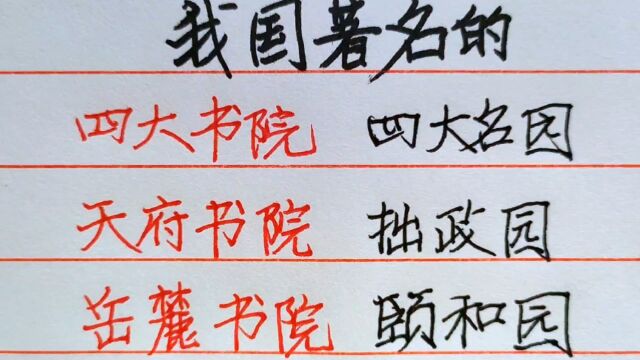 我国著名的
四大书院 四大名园
天府书院 拙政园
岳麓书院 颐和园